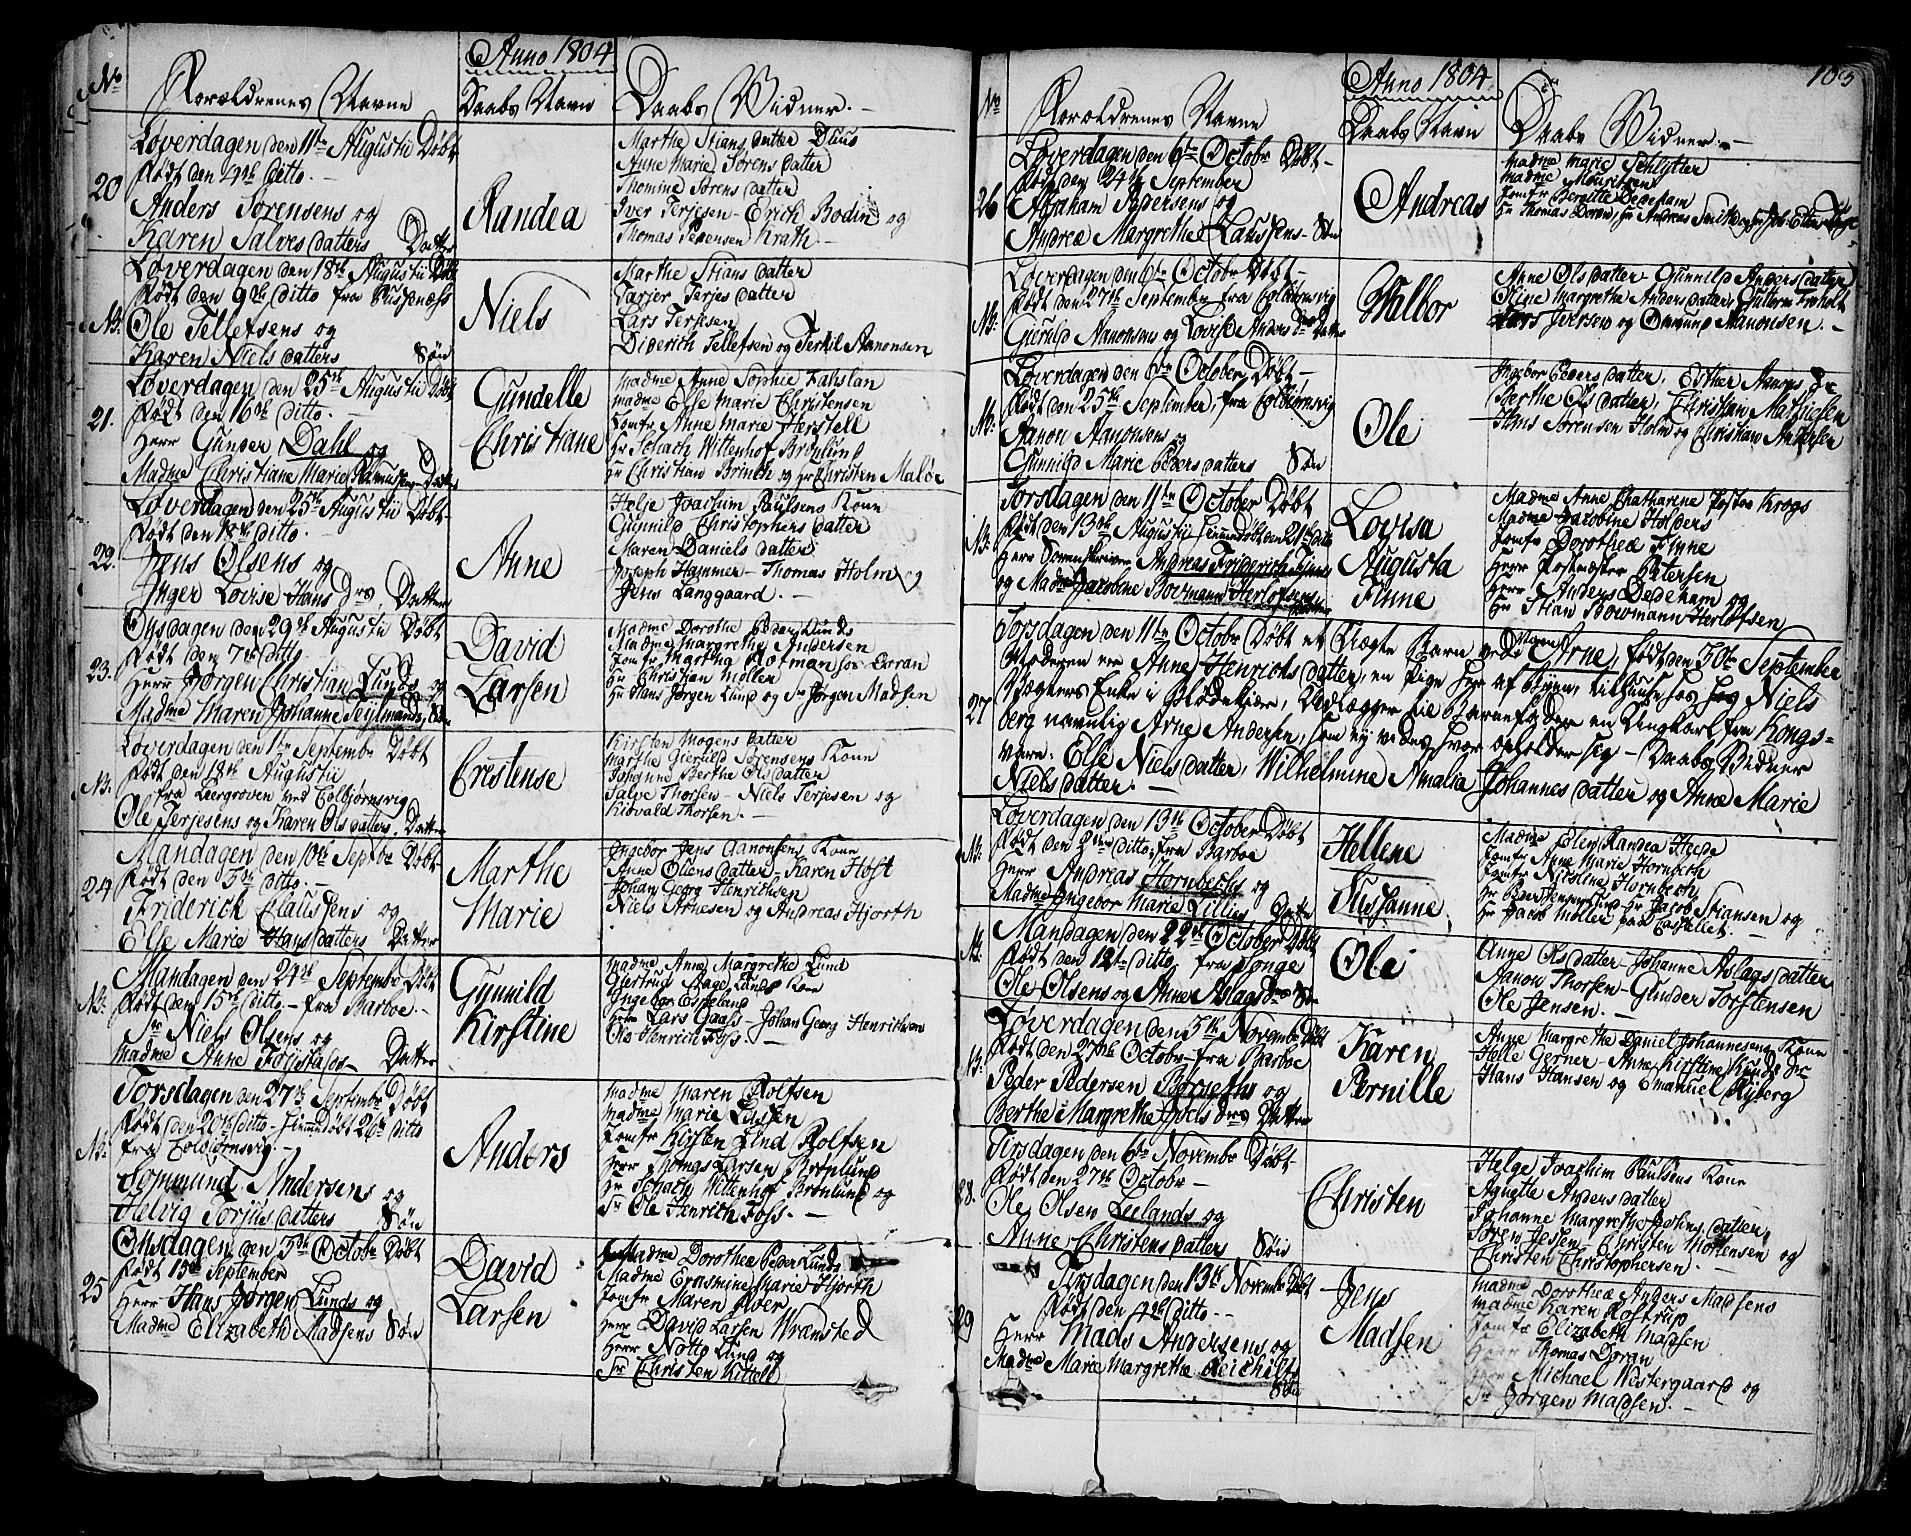 Anno 1804
No
Forældrenes Navne
Daabs Navn
Daabs Vidner. -
Løverdagen den 11te Augustii Døbt
Født den 4de ditto. -
20
Anders Sørensens og
Karen Salves datters Datter
Randea
Marthe Stians datter Duus
Anne Marie Sørens datter
Thomine Sørens datter
Iver Terjesen - Erich Bodin og
Thomas Pedersen Krath. -
Løverdagen den 18de Augustii Døbt
Født den 9de ditto fra Pusznæss
NB.
Ole Tellefsens og
Karen Niels datters Søn
Niels
Marthe Stians datter
Tarjer Terjes datter
Lars Terjesen
Diderich Tellefsen og Terkil Aanonsen
Løverdagen den 25de Augustii Døbt
Født den 16de ditto. -
21.
Herr Gunder Dahl og
Madme Christiane Marie Rasmussens Datter
Gundelle
Christiane
Madme Anne Sophie Fahslan
Madme Else Marie Christensen
Jomfr Anne Marie Herstell
Hr Schach Wittenhof Brønlund
Hr Christian Brinch og Hr Christen Maløe
Løverdagen den 25de Augustii Døbt
Født den 18de ditto. -
22.
Jens Olsens og
Inger Lovise Hans Drs, Datter
Anne
Helje Joachim Paulsens Kone
Gunnild Christophers datter
Maren Daniels datter
Joseph Hammer - Thomas Holm og
Jens Langgaard. -
Onsdagen den 29de Augustii Døbt
Født den 7de ditto
23.
Herr Jørgen Christian Lunds og
Madme Maren Johanne Teylmands, Søn
David
Larsen
Madme Dorothe Peder Lunds
Madme Margrethe Andersen
Jomfr Martha Rotman for Doran
Hr Christian Møller
Hr Hans Jørgen Lund og Sr Jørgen Madsen
Løverdagen den 1te Septembr Døbt
Født den 18de Augustii
NB.
fra Leergroven ved Colbjørnsvig
Ole Terjesens og Karen Ols datters. Datter
Crestense
Kirsten Mogens datter
Marthe Gieruld Sørensens Kone
Johanne Berthe Ols datter
Salve Thorsen - Niels Terjesen og
Thorsen. -
Mandagen den 10de Septbr Døbt
Født den 3de ditto
24
Friderich Claussens og
Else Marie Hans datters Datter
Marthe
Marie
Ingebor Jens Aanonsens Kone
Anne Ollens datter - Karen Høst
Johan Georg Henrichsen
Niels Arnesen og Andreas Hjorth
Mandagen den 24de Septembr Døbt
Født den 15de ditto - fra Barboe. -
NB.
Sr Niels Olsens og
Madme Anne Datter
Gunnild
Kirstine
Madme Anne Margrethe Lund
Giertrud Lunds Kone
Ingebor Espeland
Herr Lars Gaass - Johan Georg Henrichsen
Ole Henrich Foss. -
Torsdagen den 27de Septembr Døbt
Født den 20de ditto - Hiemedøbt 26de ditto
NB.
fra Colbjørnsvig. -
Sommund Andersens og
Helvig Torjus datters Søn
Anders
Madme Maren Rolfsen
Madme Marie Lassen
Jomfr Kirsten Lind Rolfsen
Herr Thomas Larsen Brønlund
Hr Schach Wittenhof Brønlund og
Sr Ole Henrich Foss. -
Onsdagen den 3de Octobr Døbt
Født 13de September
25
Herr Hans Jørgen Lunds og
Madme Elizabeth Madsens Søn
David
Larsen
Madme Dorothea Peder Lunds
Madme Erasmine Marie Hjorth
Jomfr Maren Aver
Herr David Larsen Wramsted
Herr Notto Lund og
Sr Christen Kittell
Anno 1804
103
No
Forældrenes Navne
Daabs Navn
Daabs Vidner. -
Løverdagen den 6te Octobr Døbt -
Født den 24de September
26
Abraham Pedersens og
Andrea Margrethe Claussens - Søn
Andreas
Madme Marie Schlytter
Madme Mouritsen
Jomfr Birgitte Dedekam
Hr Thomas Doran, Hr Andreas Smith og
Løverdagen den 6te Octobr Døbt -
Født den 27de September fra Colbiørnsvig
NB.
Gieruld Aanonsens og Lovise Anders Drs Datter
Welbor
Anne Ols datter - Gunnild Anders datter
Stine Margrethe Anders datter, Guttorm Froholt
Lars Iversen og Omund Aanonsen. -
Løverdagen den 6te October Døbt -
Født den 25de September, fra Colbiørnsvig
NB.
Aanon Aanonsens og
Gunnild Marie Peders datters Søn
Ole
Ingebor Peders datter, Esther Aanons Dr
Berthe Ols datter, Christian Mathiesen
Hans Sørensen Holm og Christian Andersen
Torsdagen den 11te October Døbt
Født den 13de Augustii Hiemedøbt den 21de ditto
NB.
Herr Sorenskriver Andreas Friderich Finnes
og Madme Jacobine Bowmann Herlofsens
Datter
Lovisa
Augusta
Finne
Madme Anne Chatharine Foster Krogs
Madme Jacobine Holbers
Jomfr Dorothea Finne
Herr Postmæster Petersen
Herr Anders Dedekam og
Hr Stian Bowmann Herlofsen
Torsdagen den 11te Octobr Døbt et Uægte Barn ved Navn Arne, født den 30te September
Moderen er Anne Henrichs datter, en Pige her af Byen, tilhuus hos Niels
27
Vægters Enke i Blødekier, Udlægger til Barnefader en Ungkarl fra Kongs-
berg navnlig Arne Andersen, som ej vides hvor opholder sig - Daabs Vidner
vare. Else Niels datter, Wilhelmine Amalia Johannes datter og Anne Marie
Niels datter. -
Løverdagen den 13de October Døbt
Født den 2den ditto, fra Barboe
NB.
Herr Andreas Hornbechs og
Madme Ingebor Marie Lillies Datter
Hellene
Susanne.
Madme Elen Randea Heede
Jomfr Anne Marie Hornbech
Jomfr Nicoline Hornbech
Hr Peder Jensen Lund Hr Jacob Stiansen og
Hr Jacob Møller paa Castellet. -
Mandagen den 22de October Døbt
Født den 12te ditto fra Songe
NB.
Ole Olsens og Anne Aslags Drs Søn
Ole
Anne Ols datter - Johanne Aslags datter
Aanon Thorsen - Gunder Torstensen
Ole Jensen. -
Løverdagen den 3de Novembr Døbt
Født den 27de Octobr - fra Barboe
NB.
Peder Pedersen Børseths og
Berthe Margrethe Joels Drs Datter
Karen
Pernille
Anne Margrethe Daniel Johannesens Kone
Helle Gerner - Anne Kirstine Knuds Dr
Hans Hansen og Emanuel Ryberg
Tirsdagen den 6te Novembr Døbt -
Født den 27de Octobr -
28.
Ole Olsen Leelands og
Anne Christens datters Søn
Christen
Helge Joachim Paulsens Kone
Agnette Anders datter
Johanne Margrethe datter,
Søren Jessen Christen Mortensen og
Christen Christophersen. -
Tirsdagen den 13de Novembr Døbt
Født den 4de ditto. -
29
Herr Mads Andersens og
Madme Marie Margrethe Reichelts
Søn
Jens
Madsen
Madme Dorothea Anders Madsens
Madme Karen Rostrup
Jomfr Elizabeth Madsen
Herr Thomas Doran
Herr Michael Westergaard og
Sr Jørgen Madsen. -